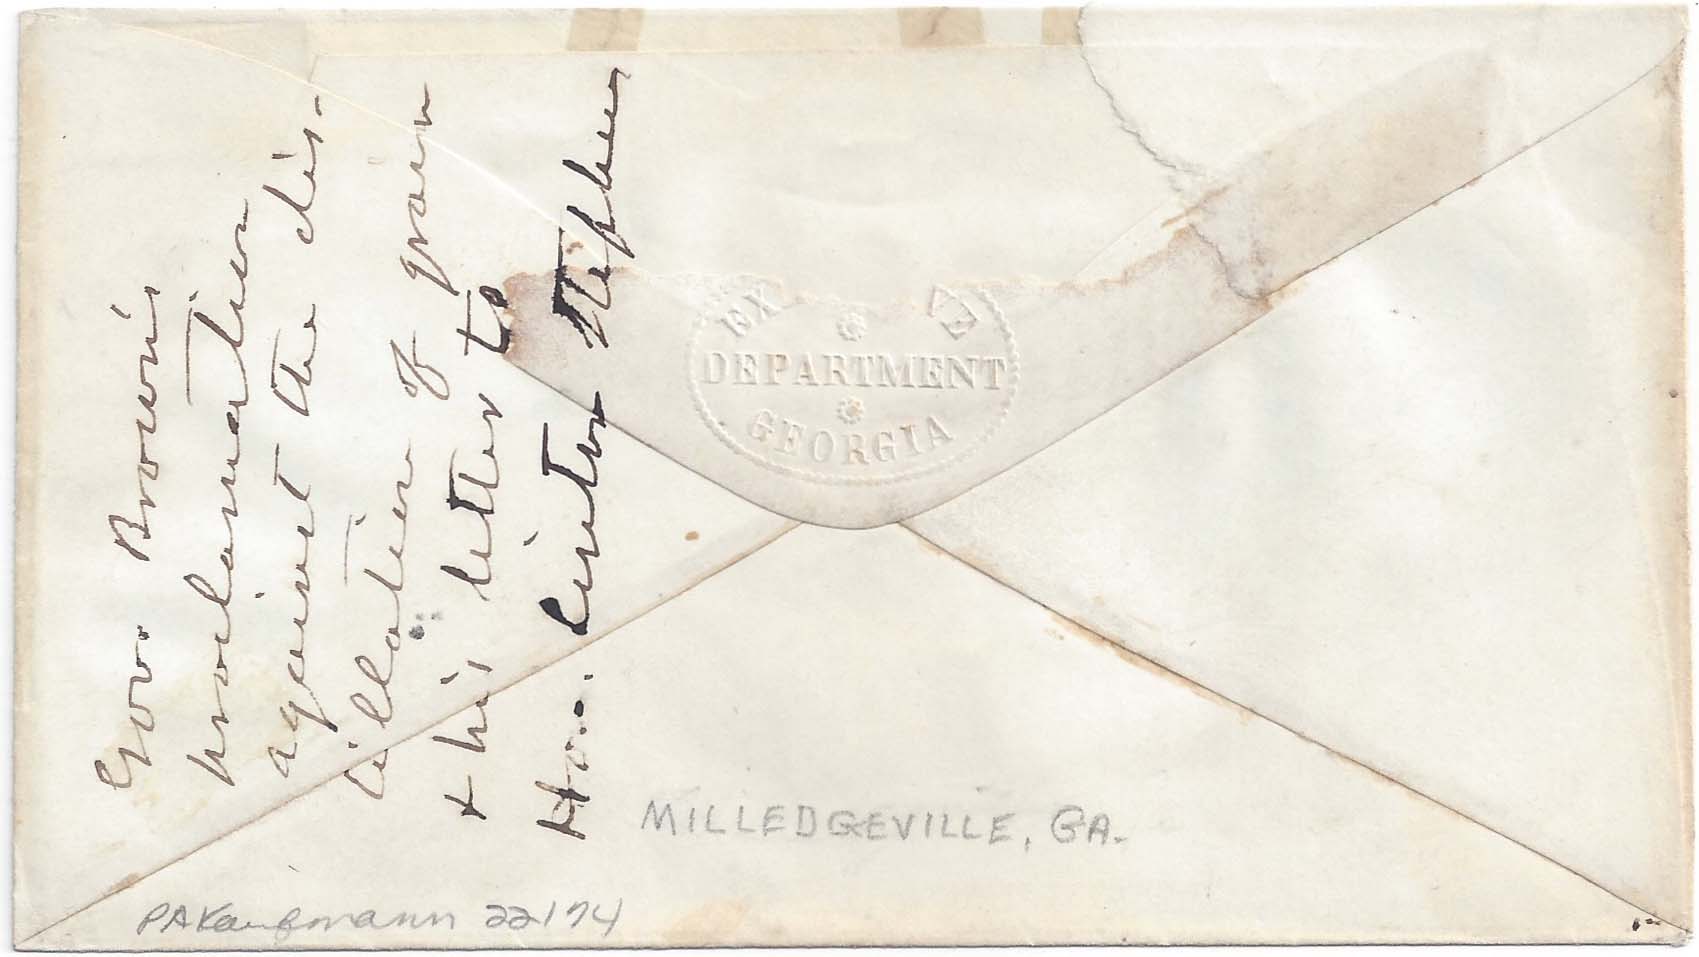 Gov. Brown's
proclamation
against the dis-
tillation of grain
+ his letter to
Hon. Linton Stephens
EX VE
DEPARTMENT
GEORGIA
MILLEDGEVILLE, GA.
PAKaufmann 22174